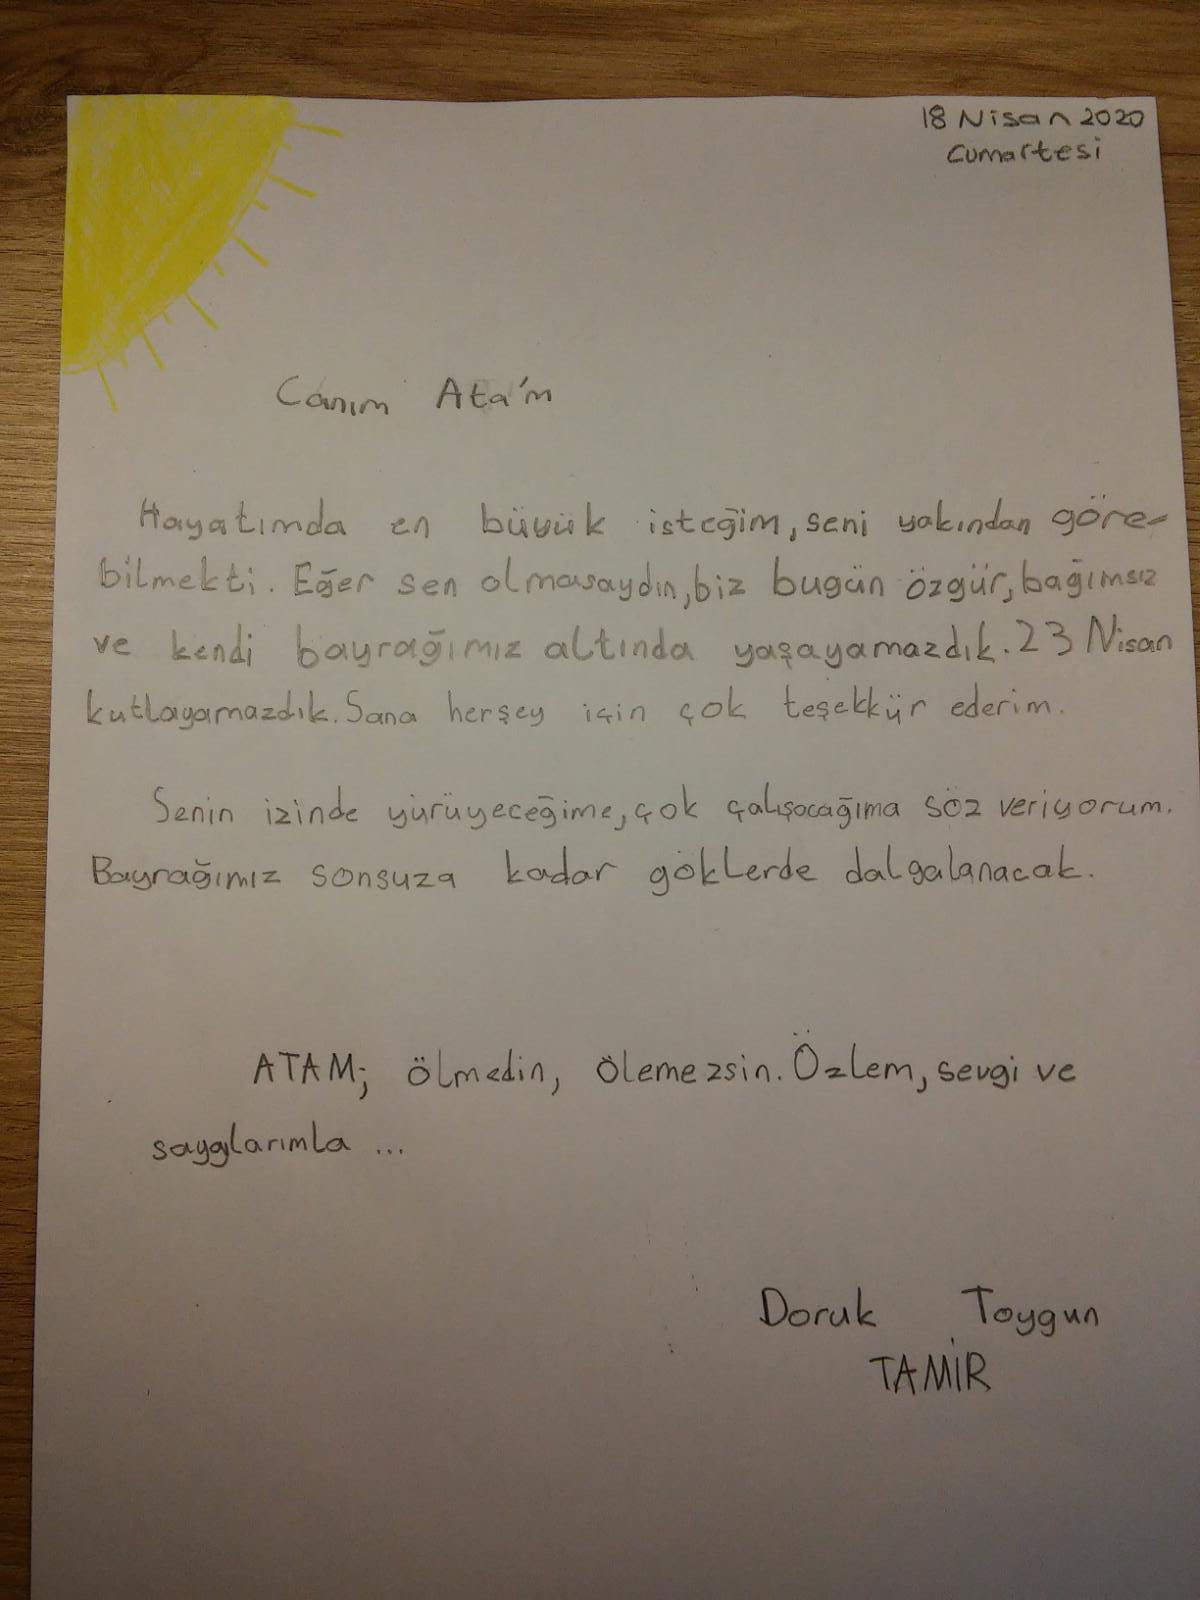 18 Nisan 2020
Cumartesi
Canım Ata'm
Hayatımda en büyük isteğim, seni yakından göre-
bilmekti. Eğer sen olmasaydın, biz bugün özgür, bağımsız
ve kendi bayrağımız altında yaşayamazdık. 23 Nisan
kutlayamazdık. Sana herşey için çok teşekkür ederim.
Senin izinde yürüyeceğime, çok çalışocağıma söz veriyorum.
Bayrağımız sonsuza kadar göklerde dalgalanacak.
ATAM; ölmedin, ölemezsin. Özlem, sevgi ve
saygılarımla ...
Doruk Toygun
TAMİR